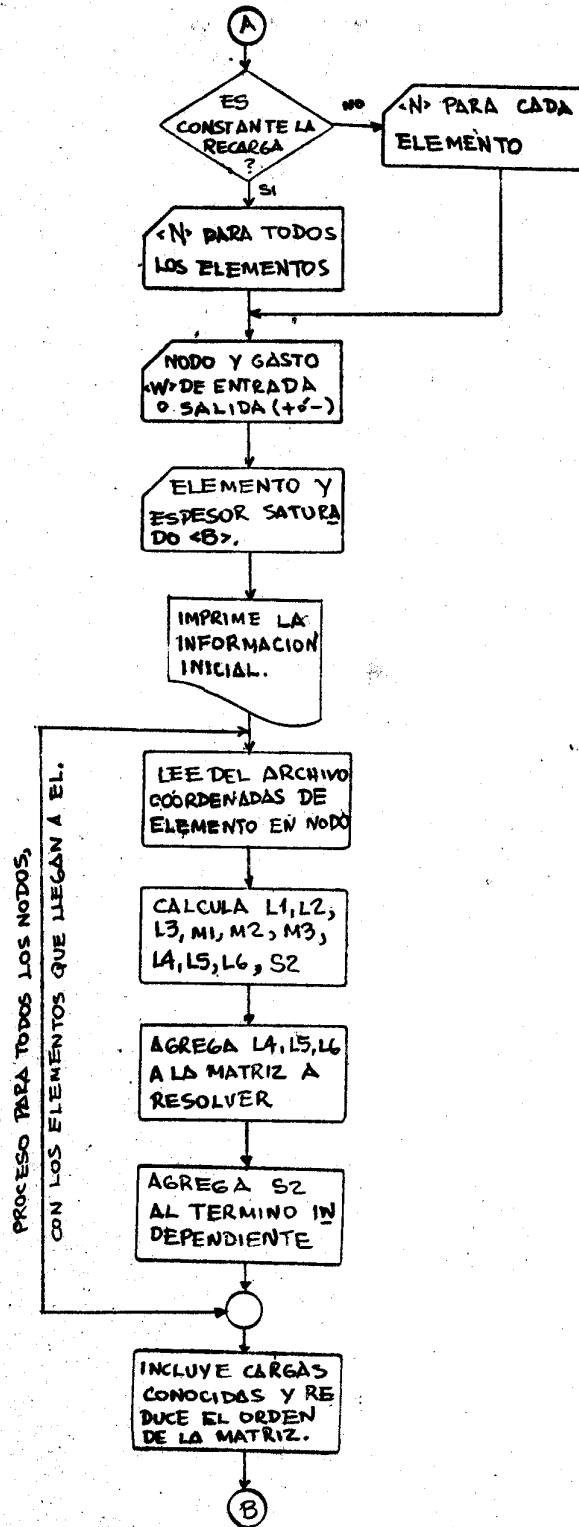 A
ES
CONSTANTE LA
RECARGA
?
NO
<N> PARA CADA
ELEMENTO
SI
<N> PARA TODOS
LOS ELEMENTOS
NODO Y GASTO
<W> DE ENTRADA
O SALIDA (+ó-)
ELEMENTO Y
ESPESOR SATURA
DO <B>.
IMPRIME LA
INFORMACION
INICIAL.
PROCESO PARA TODOS LOS NODOS,
CON LOS ELEMENTOS QUE LLEGAN A EL.
LEE DEL ARCHIVO
COORDENADAS DE
ELEMENTO EN NODO
CALCULA L1, L2,
L3, M1, M2, M3,
L4, L5, L6, S2
AGREGA L4, L5, L6
A LA MATRIZ A
RESOLVER
AGREGA S2
AL TERMINO IN
DEPENDIENTE
INCLUYE CARGAS
CONOCIDAS Y RE
DUCE EL ORDEN
DE LA MATRIZ.
B